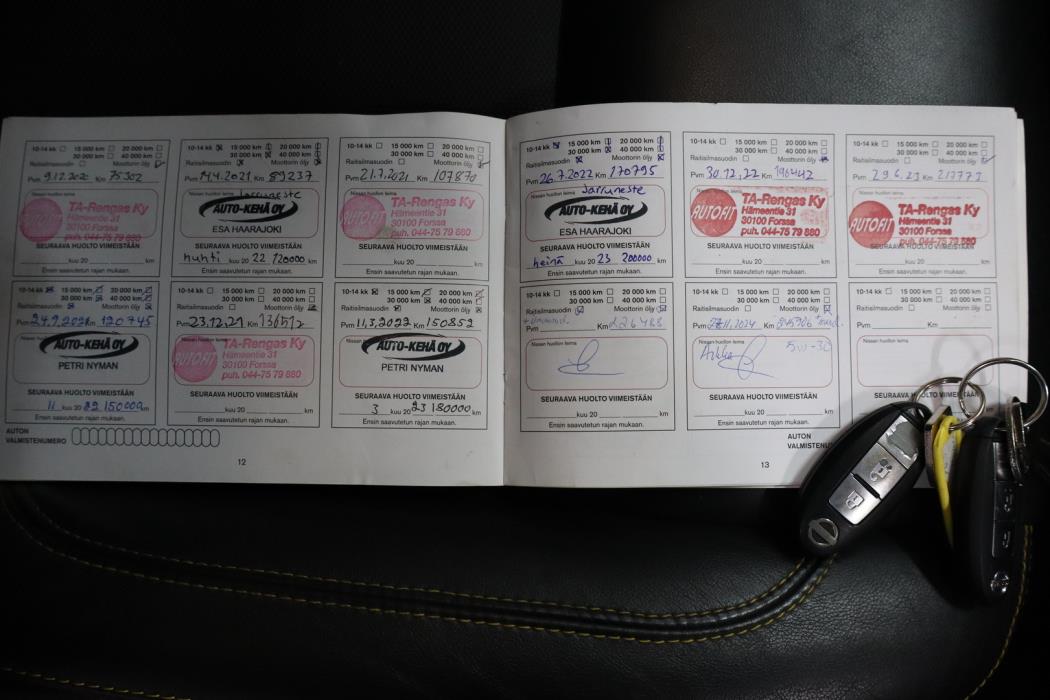 10-14 kk 15 000 km 20 000 km
30 000 km 40 000 km
Raitisilmasuodin Moottorin öljy
Pvm 9.12.2020 Km 75302
Nissan huollon leima
AUTOFIT
TA-Rengas Ky
Hämeentie 31
30100 Forssa
puh. 044-75 79 880
SEURAAVA HUOLTO VIIMEISTÄÄN
kuu 20 km
Ensin saavutetun rajan mukaan.
10-14 kk 15 000 km 20 000 km
30 000 km 40 000 km
Raitisilmasuodin Moottorin öljy
Pvm 14.4.2021 Km 89237
Jarruneste
Nissan huollon leima
AUTO-KEHÄ OY
ESA HAARAJOKI
SEURAAVA HUOLTO VIIMEISTÄÄN
huhti kuu 20 22 120000 km
Ensin saavutetun rajan mukaan.
10-14 kk 15 000 km 20 000 km
30 000 km 40 000 km
Raitisilmasuodin Moottorin öljy
Pvm 21.7.2021 Km 107870
Nissan huollon leima
AUTOFIT
TA-Rengas Ky
Hämeentie 31
30100 Forssa
puh. 044-75 79 880
SEURAAVA HUOLTO VIIMEISTÄÄN
kuu 20 km
Ensin saavutetun rajan mukaan.
10-14 kk 15 000 km 20 000 km
30 000 km 40 000 km
Raitisilmasuodin Moottorin öljy
Pvm 24.9.2021 Km 120745
Nissan huollon leima
AUTO-KEHÄ OY
PETRI NYMAN
SEURAAVA HUOLTO VIIMEISTÄÄN
11 kuu 20 22 150000 km
Ensin saavutetun rajan mukaan.
10-14 kk 15 000 km 20 000 km
30 000 km 40 000 km
Raitisilmasuodin Moottorin öljy
Pvm 23.12.21 Km
Nissan huollon leima
AUTOFIT
TA-Rengas Ky
Hämeentie 31
30100 Forssa
puh. 044-75 79 880
SEURAAVA HUOLTO VIIMEISTÄÄN
kuu 20 km
Ensin saavutetun rajan mukaan.
10-14 kk 15 000 km 20 000 km
30 000 km 40 000 km
Raitisilmasuodin Moottorin öljy
Pvm 11.3.2022 Km 150852
Nissan huollon leima
AUTO-KEHÄ OY
PETRI NYMAN
SEURAAVA HUOLTO VIIMEISTÄÄN
3 kuu 20 23 180000 km
Ensin saavutetun rajan mukaan.
AUTON
VALMISTENUMERO
12
10-14 kk 15 000 km 20 000 km
30 000 km 40 000 km
Raitisilmasuodin Moottorin öljy
Pvm 26.7.2022 Km 170795
Jarruneste
Nissan huollon leima
AUTO-KEHÄ OY
ESA HAARAJOKI
SEURAAVA HUOLTO VIIMEISTÄÄN
heinä kuu 20 23 200000 km
Ensin saavutetun rajan mukaan.
10-14 kk 15 000 km 20 000 km
30 000 km 40 000 km
Raitisilmasuodin Moottorin öljy
Pvm 30.12.22 Km 196442
Nissan huollon leima
AUTOFIT
TA-Rengas Ky
Hämeentie 31
30100 Forssa
puh. 044-75 79 880
SEURAAVA HUOLTO VIIMEISTÄÄN
kuu 20 km
Ensin saavutetun rajan mukaan.
10-14 kk 15 000 km 20 000 km
30 000 km 40 000 km
Raitisilmasuodin Moottorin öljy
Pvm 29.6.23 Km
Nissan huollon leima
AUTOFIT
TA-Rengas Ky
Hämeentie 31
30100 Forssa
puh. 044-75 79 880
SEURAAVA HUOLTO VIIMEISTÄÄN
kuu 20 km
Ensin saavutetun rajan mukaan.
10-14 kk 15 000 km 20 000 km
30 000 km 40 000 km
Raitisilmasuodin Moottorin öljy
Pvm Km 226488
Nissan huollon leima
SEURAAVA HUOLTO VIIMEISTÄÄN
kuu 20 km
Ensin saavutetun rajan mukaan.
10-14 kk 15 000 km 20 000 km
30 000 km 40 000 km
Raitisilmasuodin Moottorin öljy
Pvm Km
Nissan huollon leima
5W-30
SEURAAVA HUOLTO VIIMEISTÄÄN
kuu 20 km
Ensin saavutetun rajan mukaan.
10-14 kk 15 000 km 20 000 km
30 000 km 40 000 km
Raitisilmasuodin Moottorin öljy
Pvm Km
Nissan huollon leima
SEURAAVA
AUTON
13